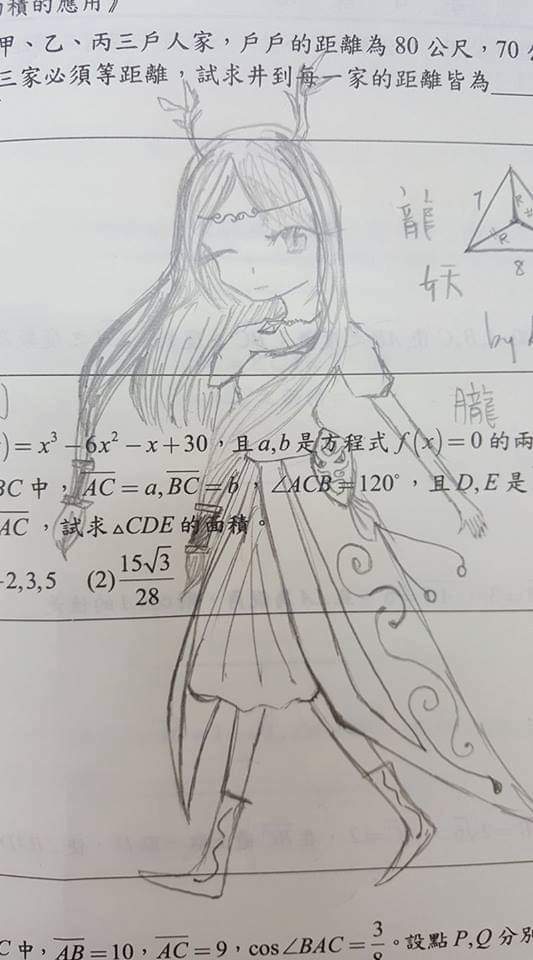 積的應用》
甲、乙、丙三戶人家，戶戶的距離為 80 公尺，70 公
三家必須等距離，試求井到每一家的距離皆為
龍
妖
by
7
R
R
8
朧
)=x³−6x²−x+30，且 a,b 是方程式 f(x)=0 的兩
BC 中，AC=a,BC=b，∠ACB=120°，且 D,E 是
AC，試求△CDE 的面積。
-2,3,5 (2) 15√3/28
C 中，AB=10，AC=9，cos∠BAC=3/8。設點 P,Q 分別